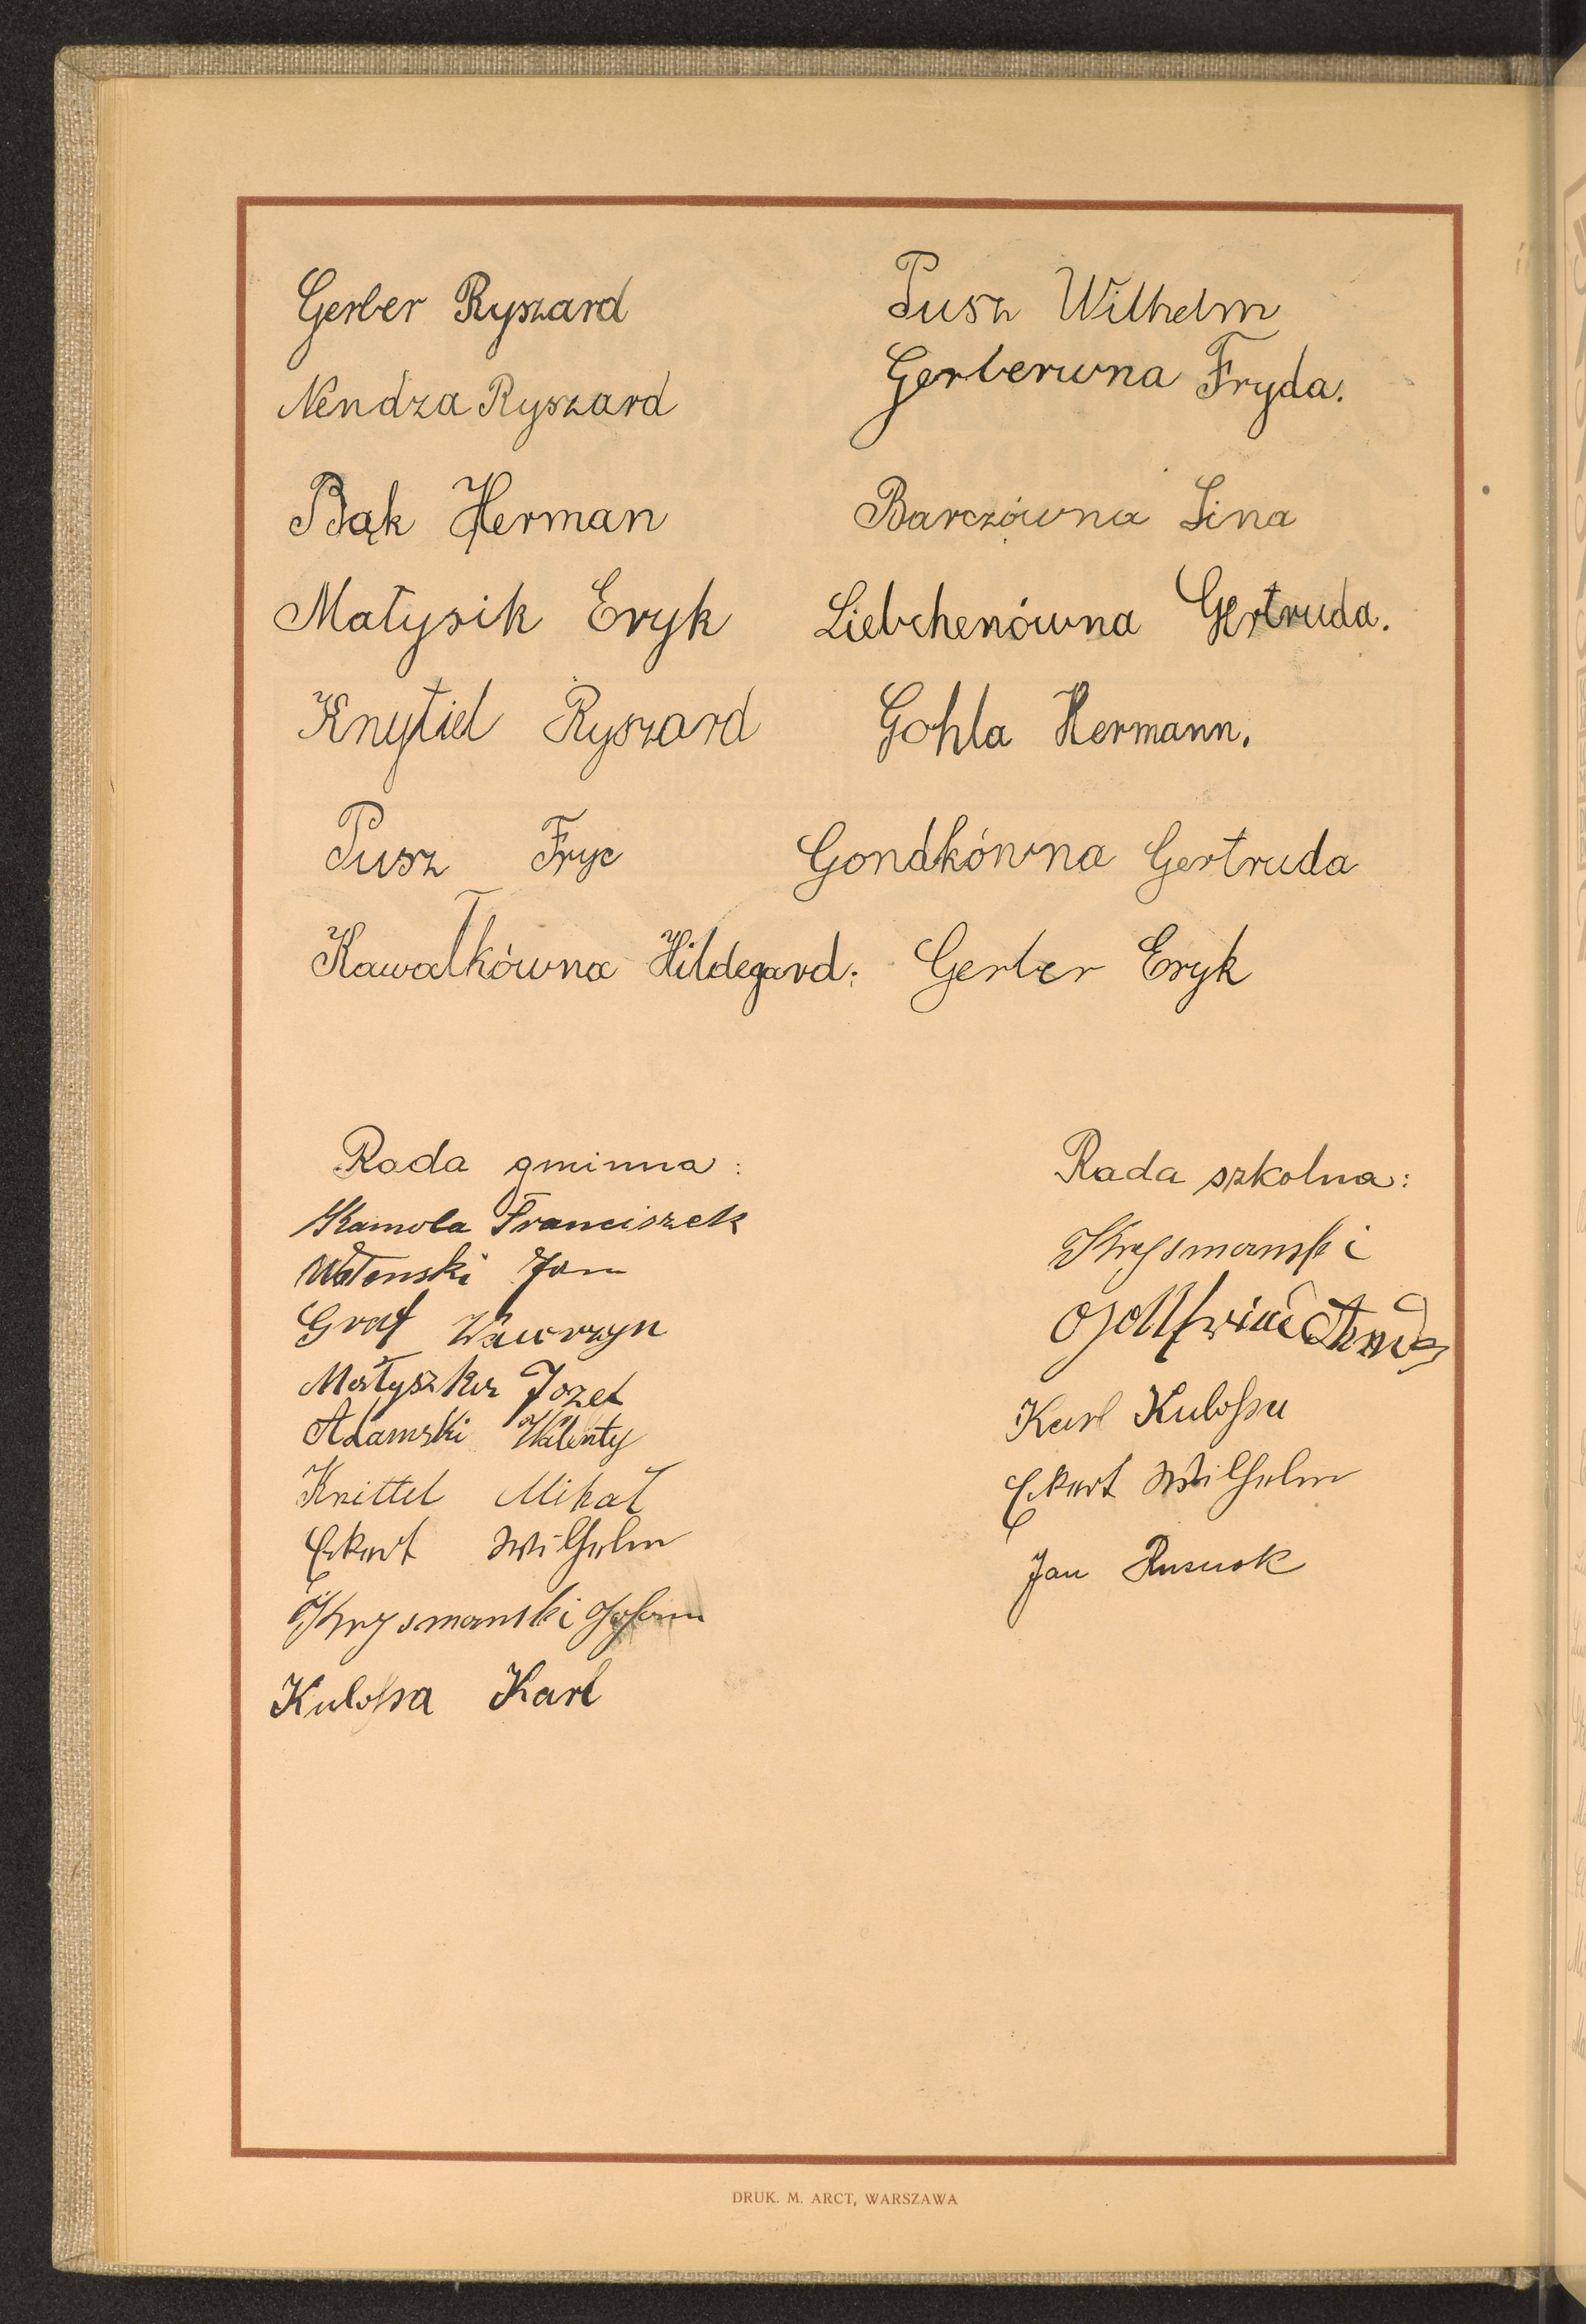 Gerber Ryszard
Nendza Ryszard
Bąk Herman
Małysik Eryk
Knytel Ryszard
Pusz Fryc
Kawałkówna Hildegard.
Pusz Wilhelm
Gerberwna Fryda.
Barczówna Lina
Liebchenówna Gertruda.
Gohla Hermann.
Gondkówna Gertruda
Gerber Eryk
Rada gminna:
Kamola Franciszek
Jan
Graf Wawrzyn
Małyszka Jozef
Adamski Walenty
Knittel Mikał
Ekert Wilhelm
Krysmanski Johann
Kulossa Karl
Rada szkolna:
Krysmanski
Karl Kulossa
Ekert Wilhelm
Jan
DRUK. M. ARCT, WARSZAWA